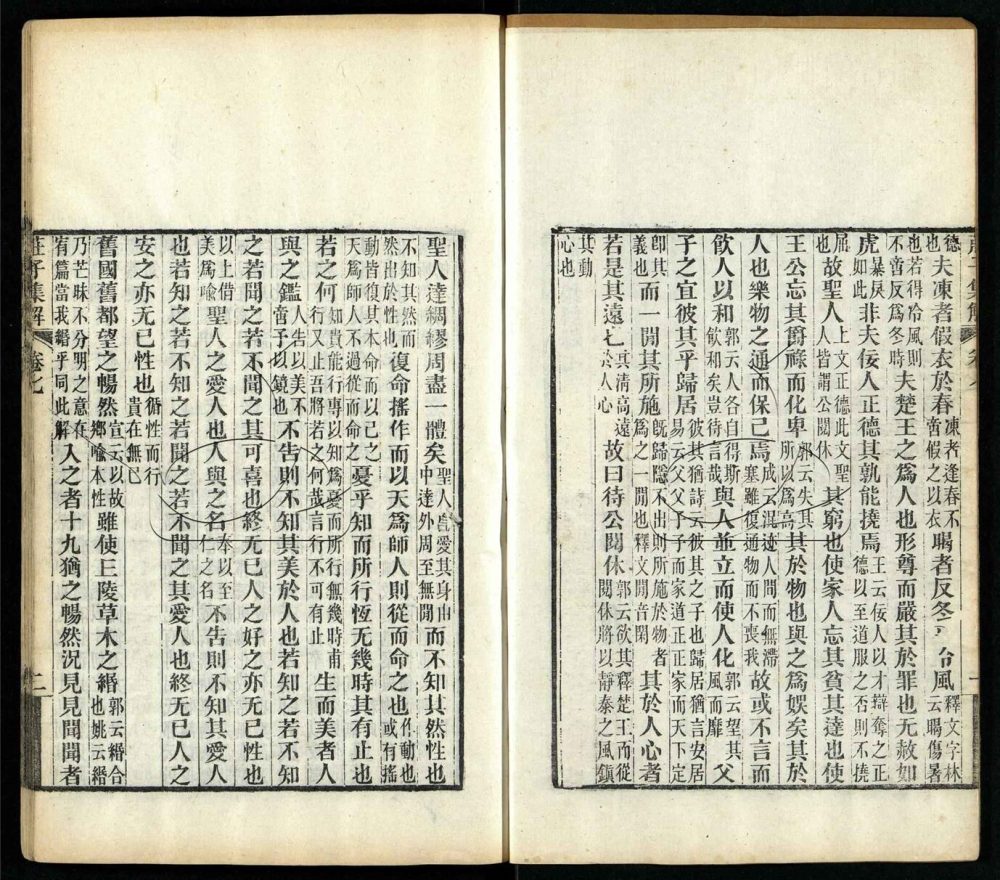 德也夫凍者假衣於春凍者逢春不啻假之以衣暍者反冬乎冷風釋文字林云暍傷暑
也若得冷風則不啻反爲冬時夫楚王之爲人也形尊而嚴其於罪也无赦如
虎暴戾如此非夫佞人正德其孰能撓焉王云佞人以才辯奪之正德以至道服之否則不撓
屈也故聖人上文正德此文聖人人皆謂公閱休其窮也使家人忘其貧其達也使
王公忘其爵祿而化卑郭云失其所以爲高其於物也與之爲娛矣其於
人也樂物之通而保己焉成云混迹人間而無滯塞雖復通物而不喪我故或不言而
飲人以和郭云人各自得斯飲和矣豈待言哉與人並立而使人化郭云望其風而靡父
子之宜彼其乎歸居彼其猶詩云彼其之子也歸居猶言安居易云父父子子而家道正正家而天下定
卽其義也而一閒其所施旣歸隱不出則所施於物者爲之一閒也釋文閒音閑其於人心者
若是其遠也其清高遠於人心故曰待公閱休郭云欲其釋楚王而從閱休將以靜泰之風鎭
其動心也
聖人達綢繆周盡一體矣聖人皆愛其身由中達外周至無閒而不知其然性也
不知其然而然出於性也復命搖作而以天爲師人則從而命之也作動也或有搖
動皆復其本命而以己之天爲師人不過從而命之憂乎知而所行恆无幾時其有止也
若之何知貴能行專以知爲憂而所行無幾時甫行又止吾將若之何哉言行不可有止生而美者人
與之鑑人告以美不啻予以鏡也不告則不知其美於人也若知之若不知
之若聞之若不聞之其可喜也終无已人之好之亦无已性也
以上借美爲喻聖人之愛人也人與之名奉以至仁之名不告則不知其愛人
也若知之若不知之若聞之若不聞之其愛人也終无已人之
安之亦无已性也循性而行貴在無已
舊國舊都望之暢然宣云以故鄉喻本性雖使丘陵草木之緡郭云緡合也姚云緡
乃芒昧不分明之意在宥篇當我緡乎同此解入之者十九猶之暢然況見見聞聞者
莊子集解 卷七 二